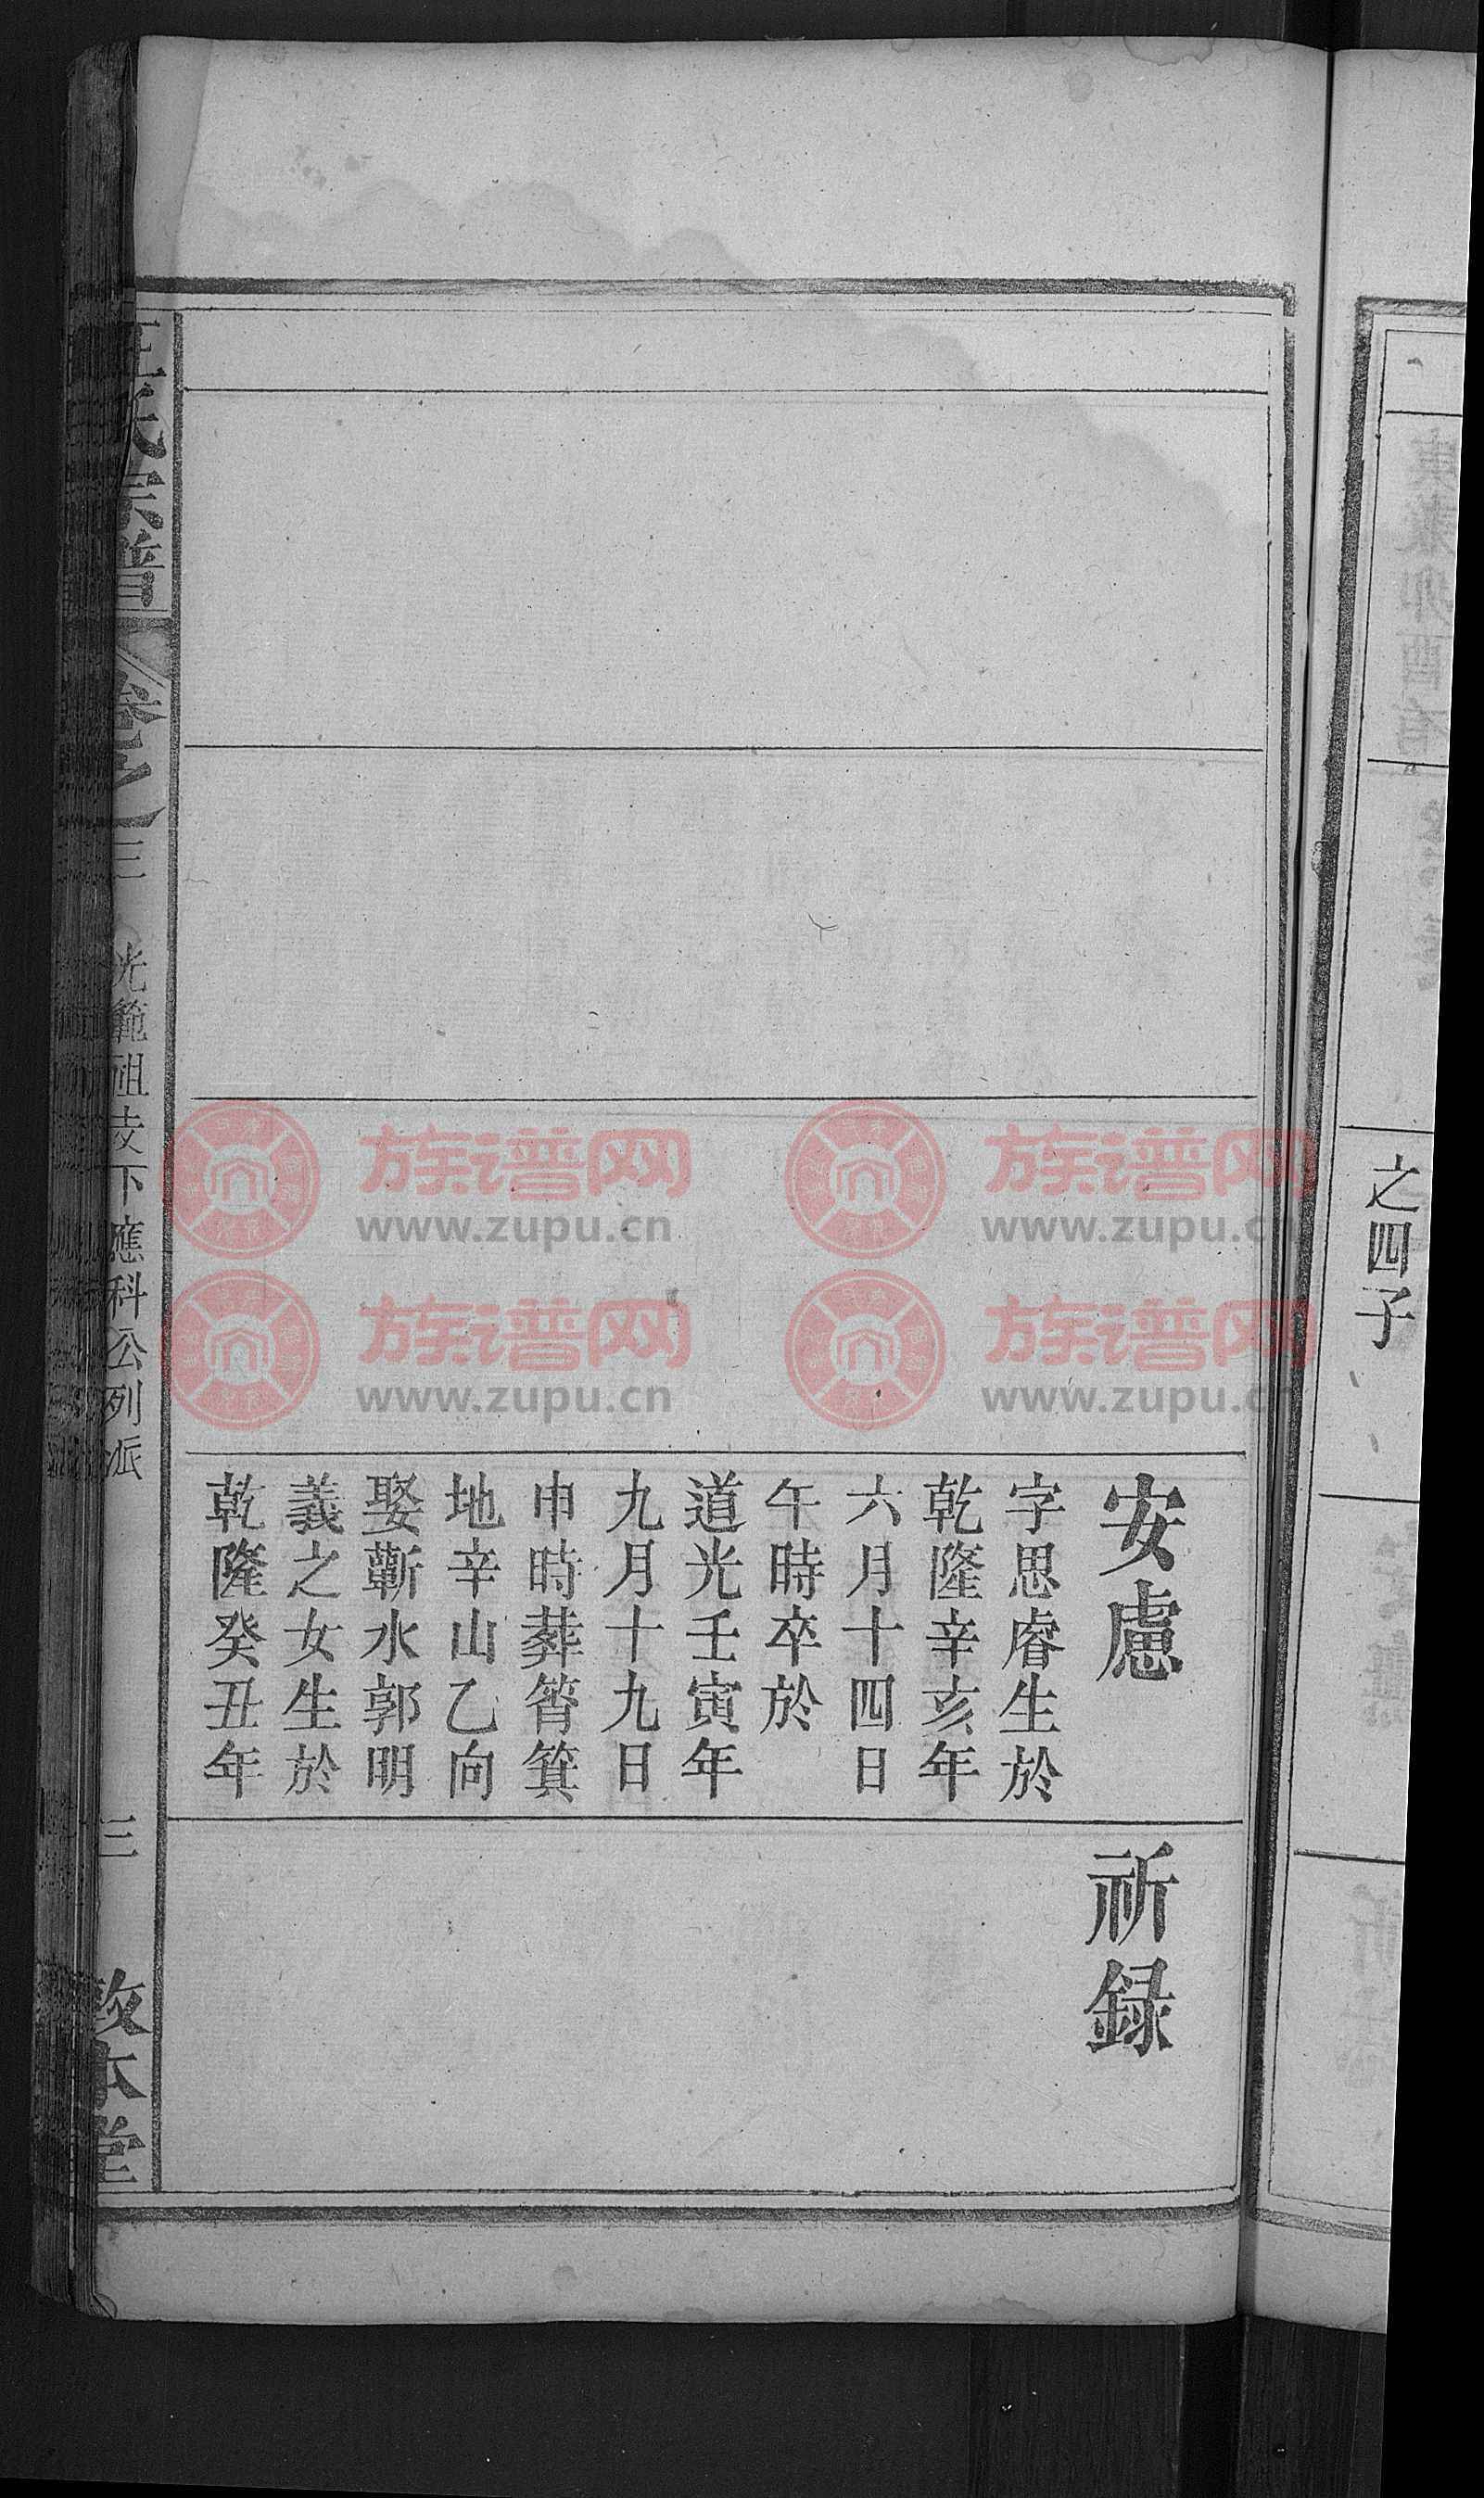 之四子
安慮
字思睿生於
乾隆辛亥年
六月十四日
午時卒於
道光壬寅年
九月十九日
申時葬筲箕
地辛山乙向
娶蘄水郭明
義之女生於
乾隆癸丑年
祈録
氏宗譜
卷之三
光範祖支下應科公列派
三
敦本堂
族谱网
www.zupu.cn
族谱网
www.zupu.cn
族谱网
www.zupu.cn
族谱网
www.zupu.cn